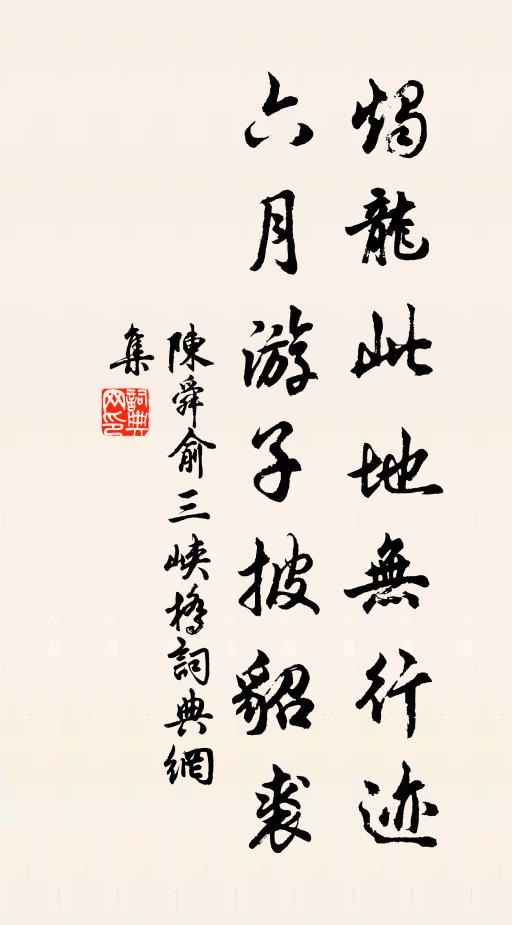 燭龍此地無行迹
六月游子披貂裘
陳舜俞三峽橋詞典網
集
詞典
网印